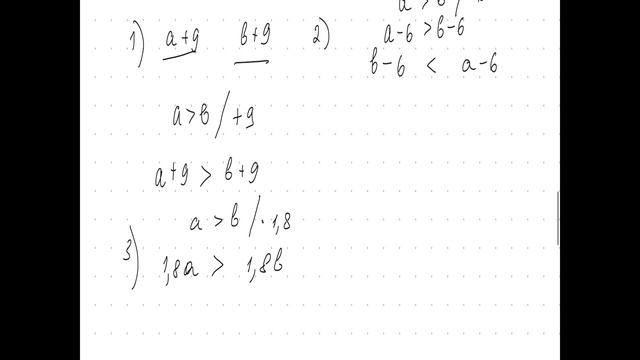 1) a+9 b+9
a>в / +9
a+9 > в+9
2)
a-6 >в-6
в-6 < a-6
3) a >в / · 1,8
1,8a > 1,8в